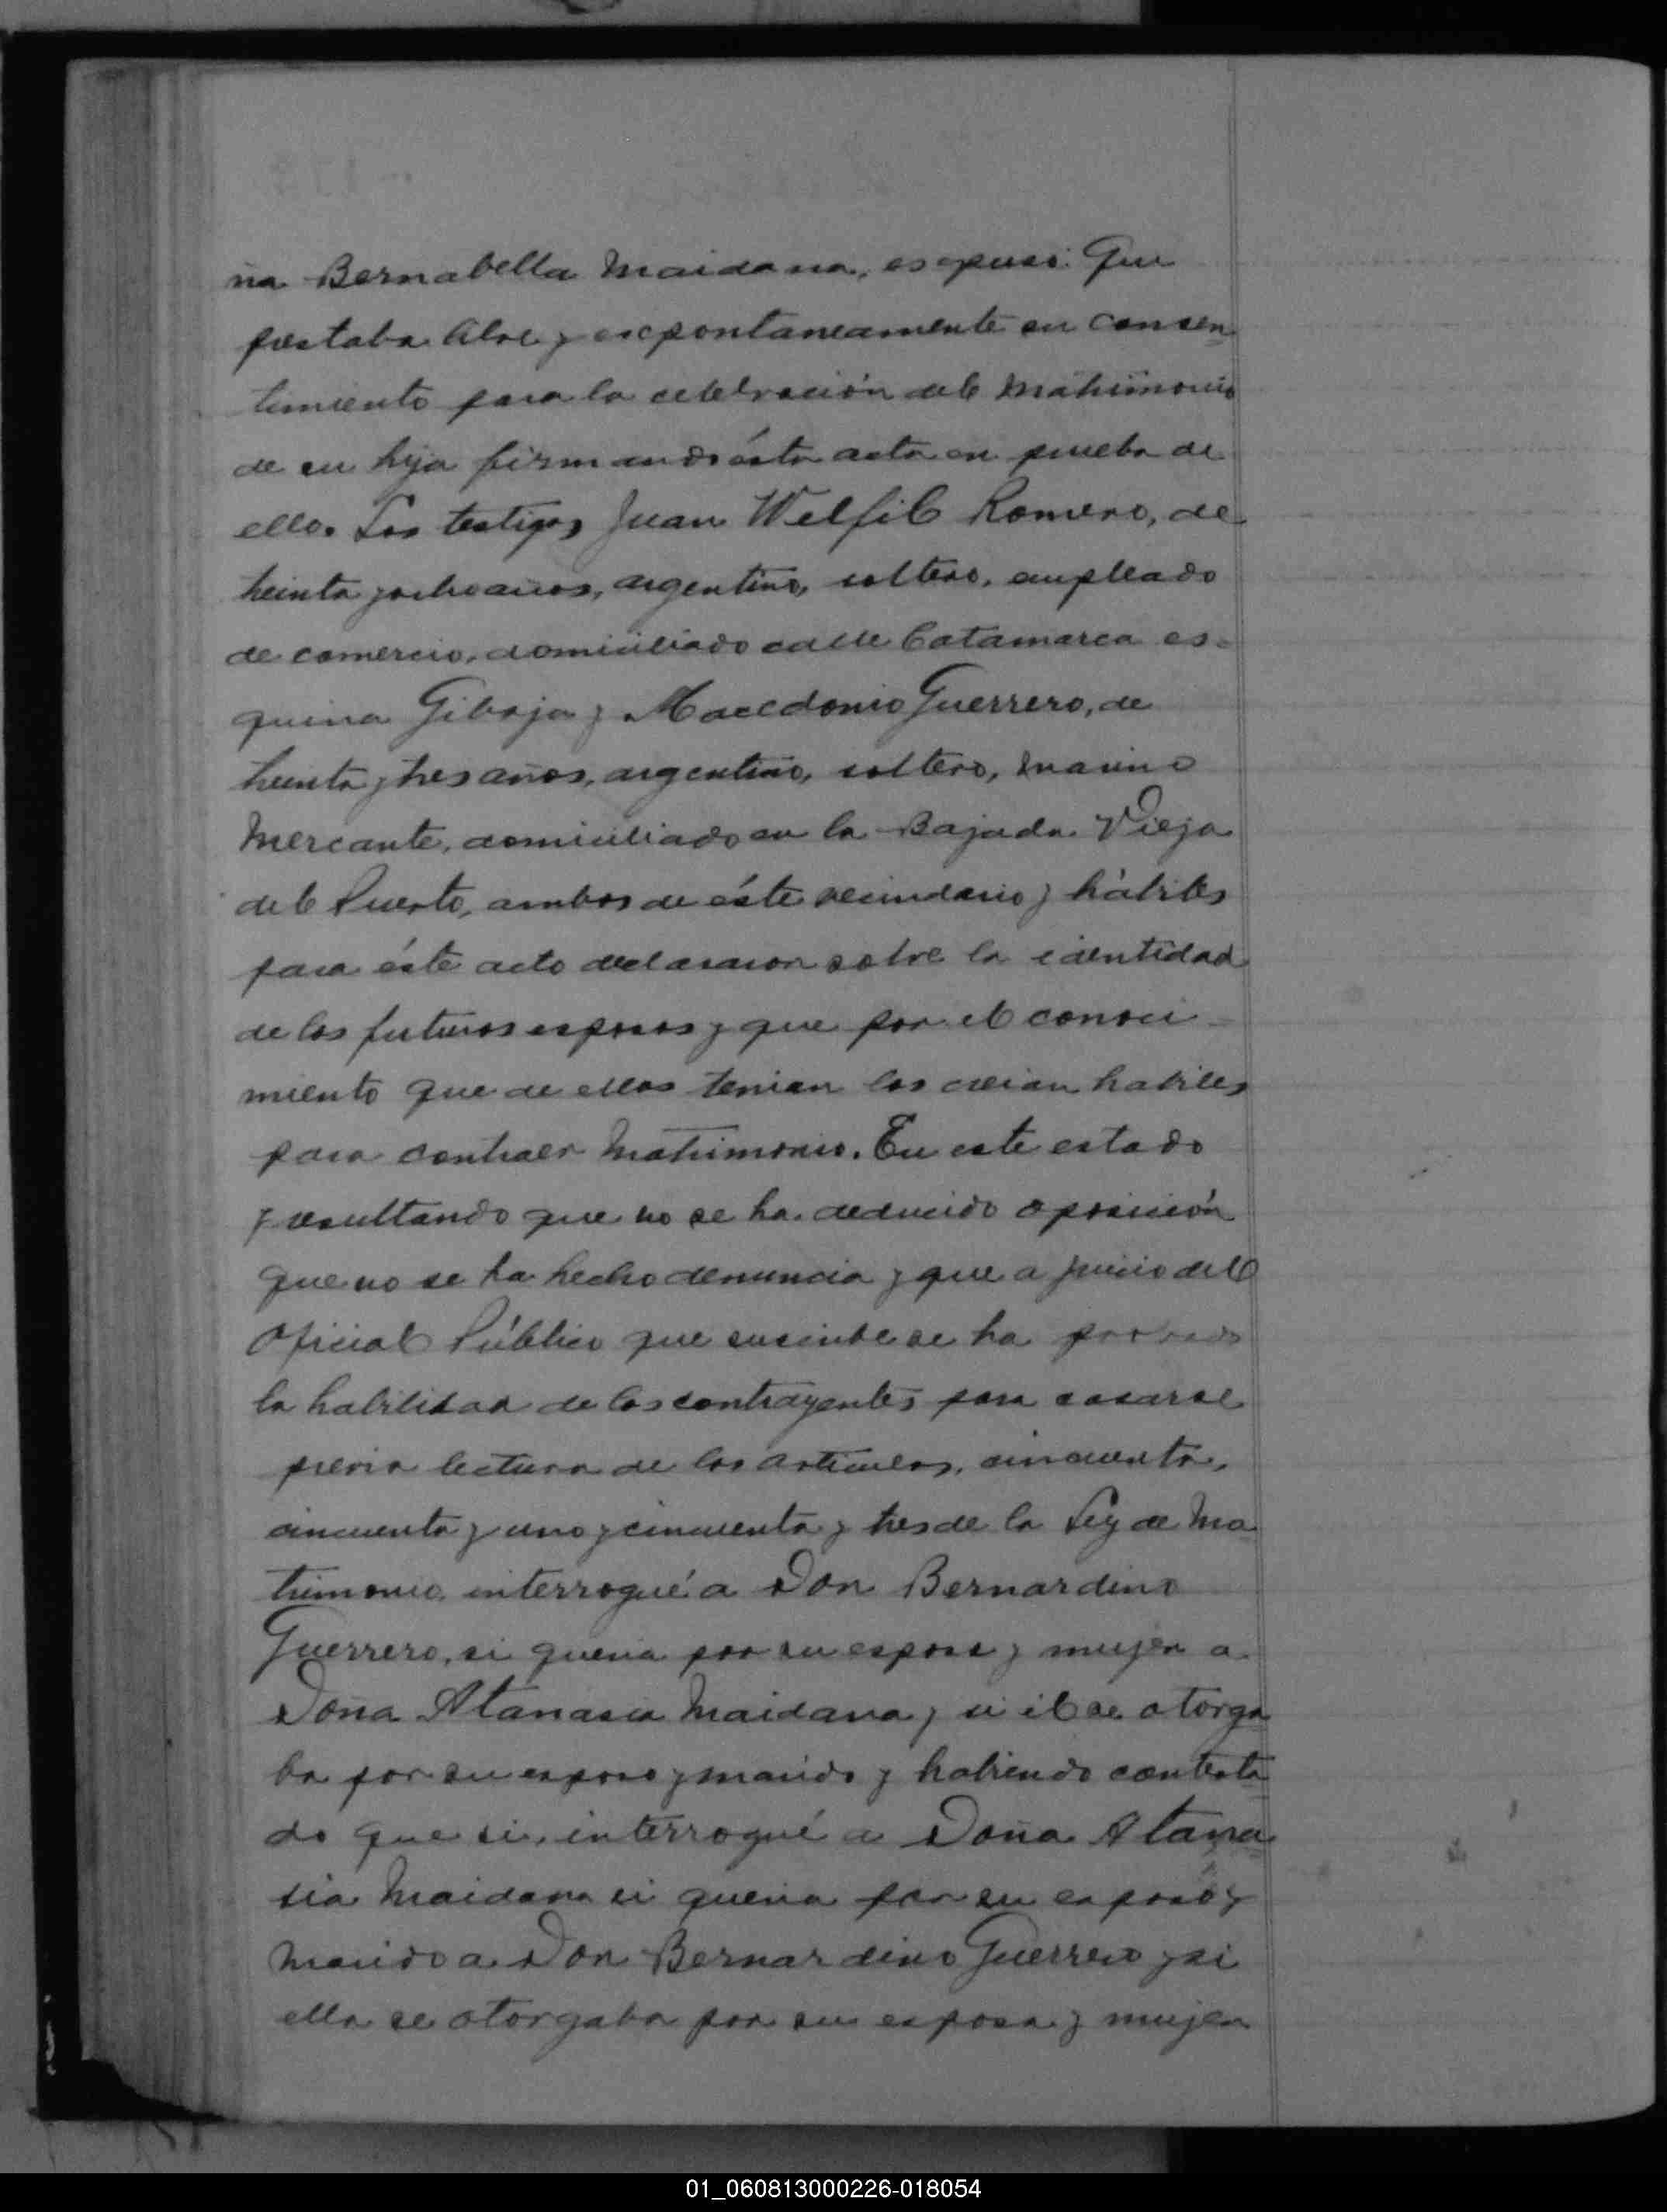 ña Bernabella Maidana, expuso: Que
prestaba libre y expontaneamente su consen
timiento para la celebración del Matrimonio
de su hija firmando ésta acta en prueba de
ello. Los testigos Juan Welfil Romero, de
treinta y ocho años, argentino, soltero, empleado
de comercio, domiciliado calle Catamarca es-
quina Gibaja y Macedonio Guerrero, de
treinta y tres años, argentino, soltero, marino
Mercante, domiciliado en la Bajada Vieja
del Puerto, ambos de éste vecindario y hábiles
para éste acto declararon sobre la identidad
de los futuros esposos y que por el conoci-
miento que de ellos tenian los creian habiles
para contraer Matrimonio. En este estado
y resultando que no se ha deducido oposición
que no se ha hecho denuncia y que a juicio del
Oficial Público que suscribe se ha probado
la habilidad de los contrayentes para casarse
previa lectura de los articulos, cincuenta,
cincuenta y uno y cincuenta y tres de la Ley de Ma
trimonio, interrogué a Don Bernardino
Guerrero, si queria por su esposa y mujer a
Doña Atanasia Maidana y si él se otorga
ba por su esposo y marido y habiendo contesta
do que si, interrogué a Doña Atana
sia Maidana si queria por su esposo y
marido a Don Bernardino Guerrero y si
ella se otorgaba por su esposa y mujer
01_060813000226-018054